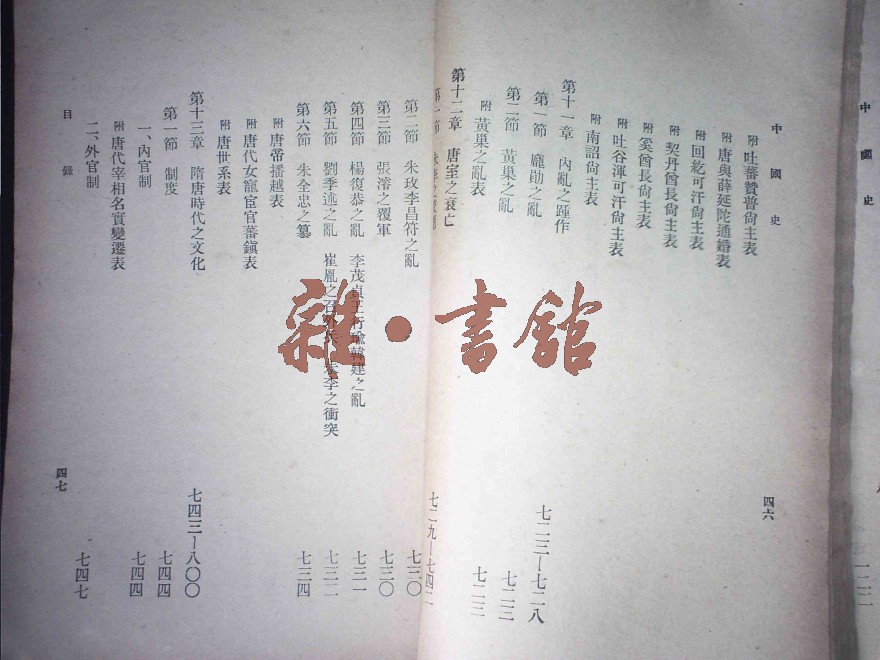 中國史
中國史
附 吐蕃贊普尙主表
附 唐與薛延陀通婚表
附 回紇可汗尙主表
附 契丹酋長尙主表
附 奚酋長尙主表
附 吐谷渾可汗尙主表
附 南詔尙主表
第十一章 內亂之踵作 七二三—七二八
第一節 龐勛之亂 七二三
第二節 黃巢之亂 七二三
附 黃巢之亂表
四六
第十二章 唐室之衰亡 七二九—七四二
第一節 朱李之
第二節 朱玫李昌符之亂 七三〇
第三節 張濬之覆軍 七三〇
第四節 楊復恭之亂 李茂貞王行瑜韓建之亂 七三一
第五節 劉季述之亂 崔胤之召 朱李之衝突 七三二
第六節 朱全忠之篡 七三四
附 唐帝播越表
附 唐代女寵宦官蕃鎭表
附 唐世系表
第十三章 隋唐時代之文化 七四三—八〇〇
第一節 制度 七四四
一、內官制 七四四
附 唐代宰相名實變遷表
二、外官制 七四七
目錄
四七
雜·書館